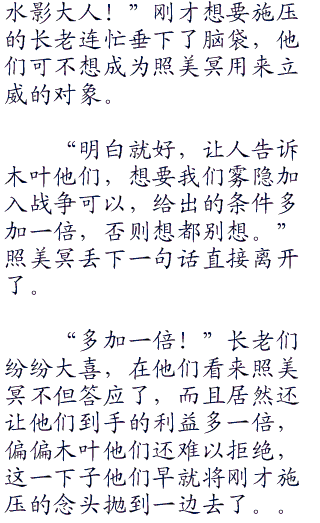 水影大人！”刚才想要施压
的长老连忙垂下了脑袋，他
们可不想成为照美冥用来立
威的对象。
“明白就好，让人告诉
木叶他们，想要我们雾隐加
入战争可以，给出的条件多
加一倍，否则想都别想。”
照美冥丢下一句话直接离开
了。
“多加一倍！”长老们
纷纷大喜，在他们看来照美
冥不但答应了，而且居然还
让他们到手的利益多一倍，
偏偏木叶他们还难以拒绝，
这一下子他们早就将刚才施
压的念头抛到一边去了。。